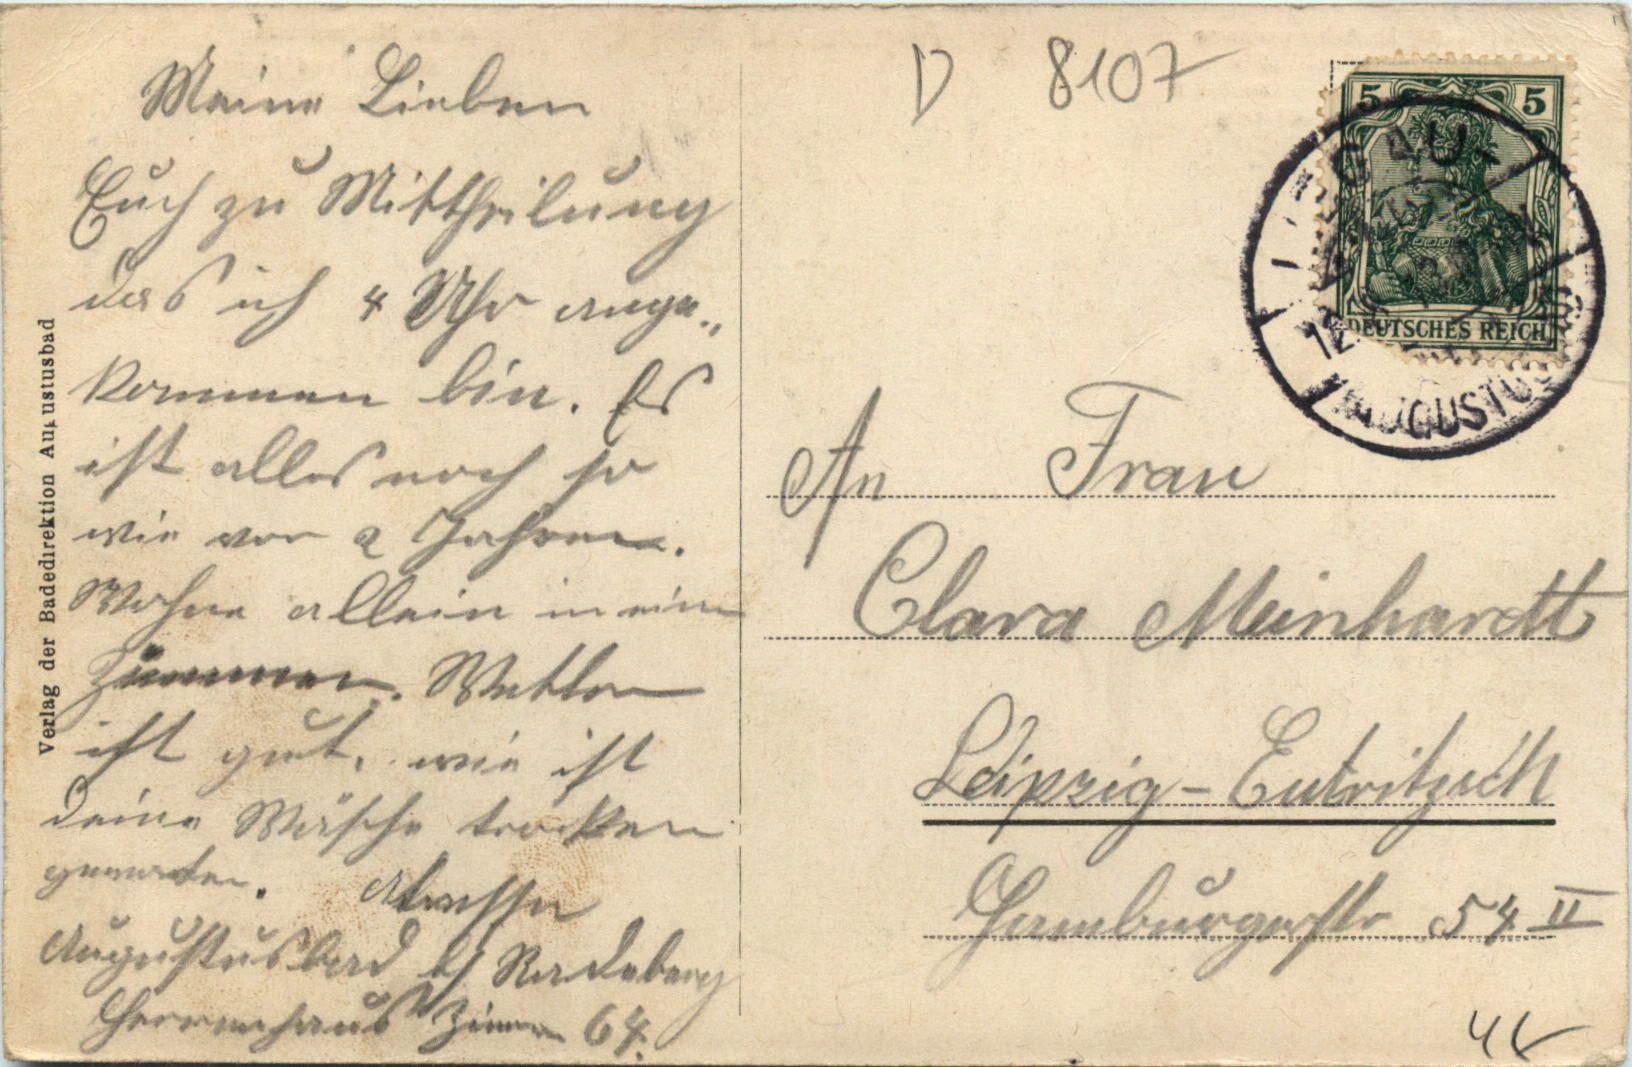 Meine Lieben
Euch zu Mittheilung
das ich 4 Uhr ange„
kommen bin. Es
ist alles noch so
wie vor 2 Jahren.
Wohne allein in ein
Zimmer. Wetter
ist gut, wie ist
deine Wäsche trocken
geworden. Adresse
Augustusbad b/ Radeberg
Herrenhaus Zimmer 64.
Verlag der Badedirektion Augustusbad
D 8107
5 5
DEUTSCHES REICH
LIEGAU-
12
AUGUSTUS
An Frau
Clara Meinhardt
Leipzig-Eutritzsch
Hamburgerstr 54 II